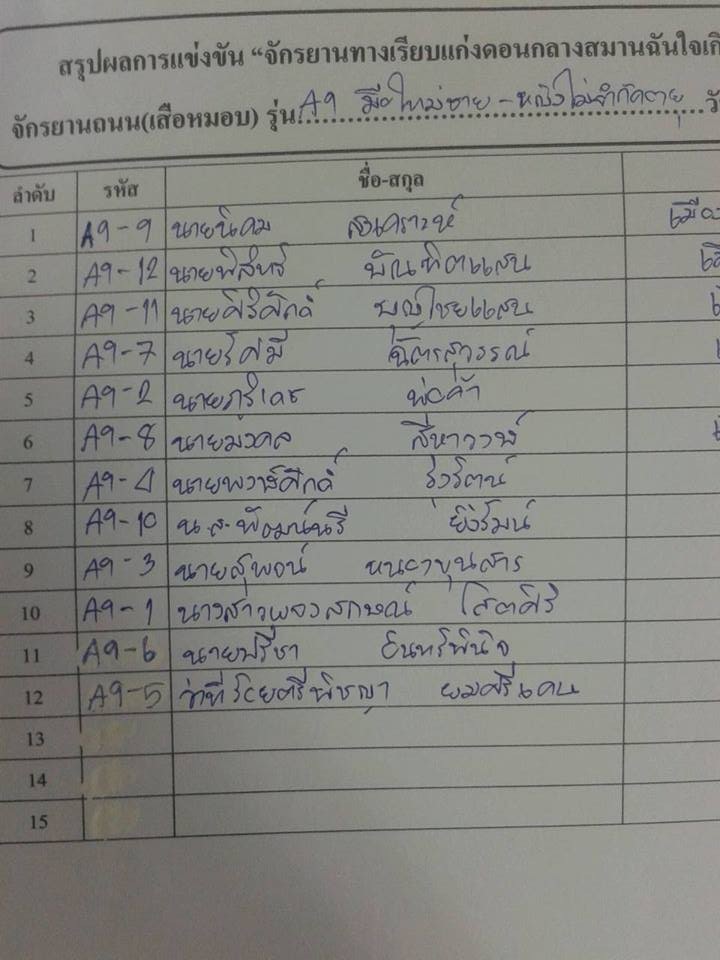 สรุปผลการแข่งขัน “จักรยานทางเรียบแก่งดอนกลางสมานฉันใจเกิ
จักรยานถนน(เสือหมอบ) รุ่น A9 มือใหม่ชาย-หญิงไม่จำกัดอายุ วั
ลำดับ รหัส ชื่อ-สกุล
1 A9-9 นายนิคม สงเคราะห์ เมือง
2 A9-12 นายพิสิทธิ์ บัณฑิตแสน
3 A9-11 นายศิริศักดิ์ บุญไชยแสน
4 A9-7 นายรัศมี ฉัตรสุวรรณ์
5 A9-2 นายภูริเดช พ่อค้า
6 A9-8 นายมงคล สีหาวงษ์
7 A9-4 นายพงษ์ศักดิ์ รุ่งรัตน์
8 A9-10 น.ส.
9 A9-3 นายสุพจน์
10 A9-1 นางสาว โสตศิริ
11 A9-6 นายปรีชา อินทร์พินิจ
12 A9-5 ว่าที่ร้อยตรีพิชญา ยมศรีเคน
13
14
15